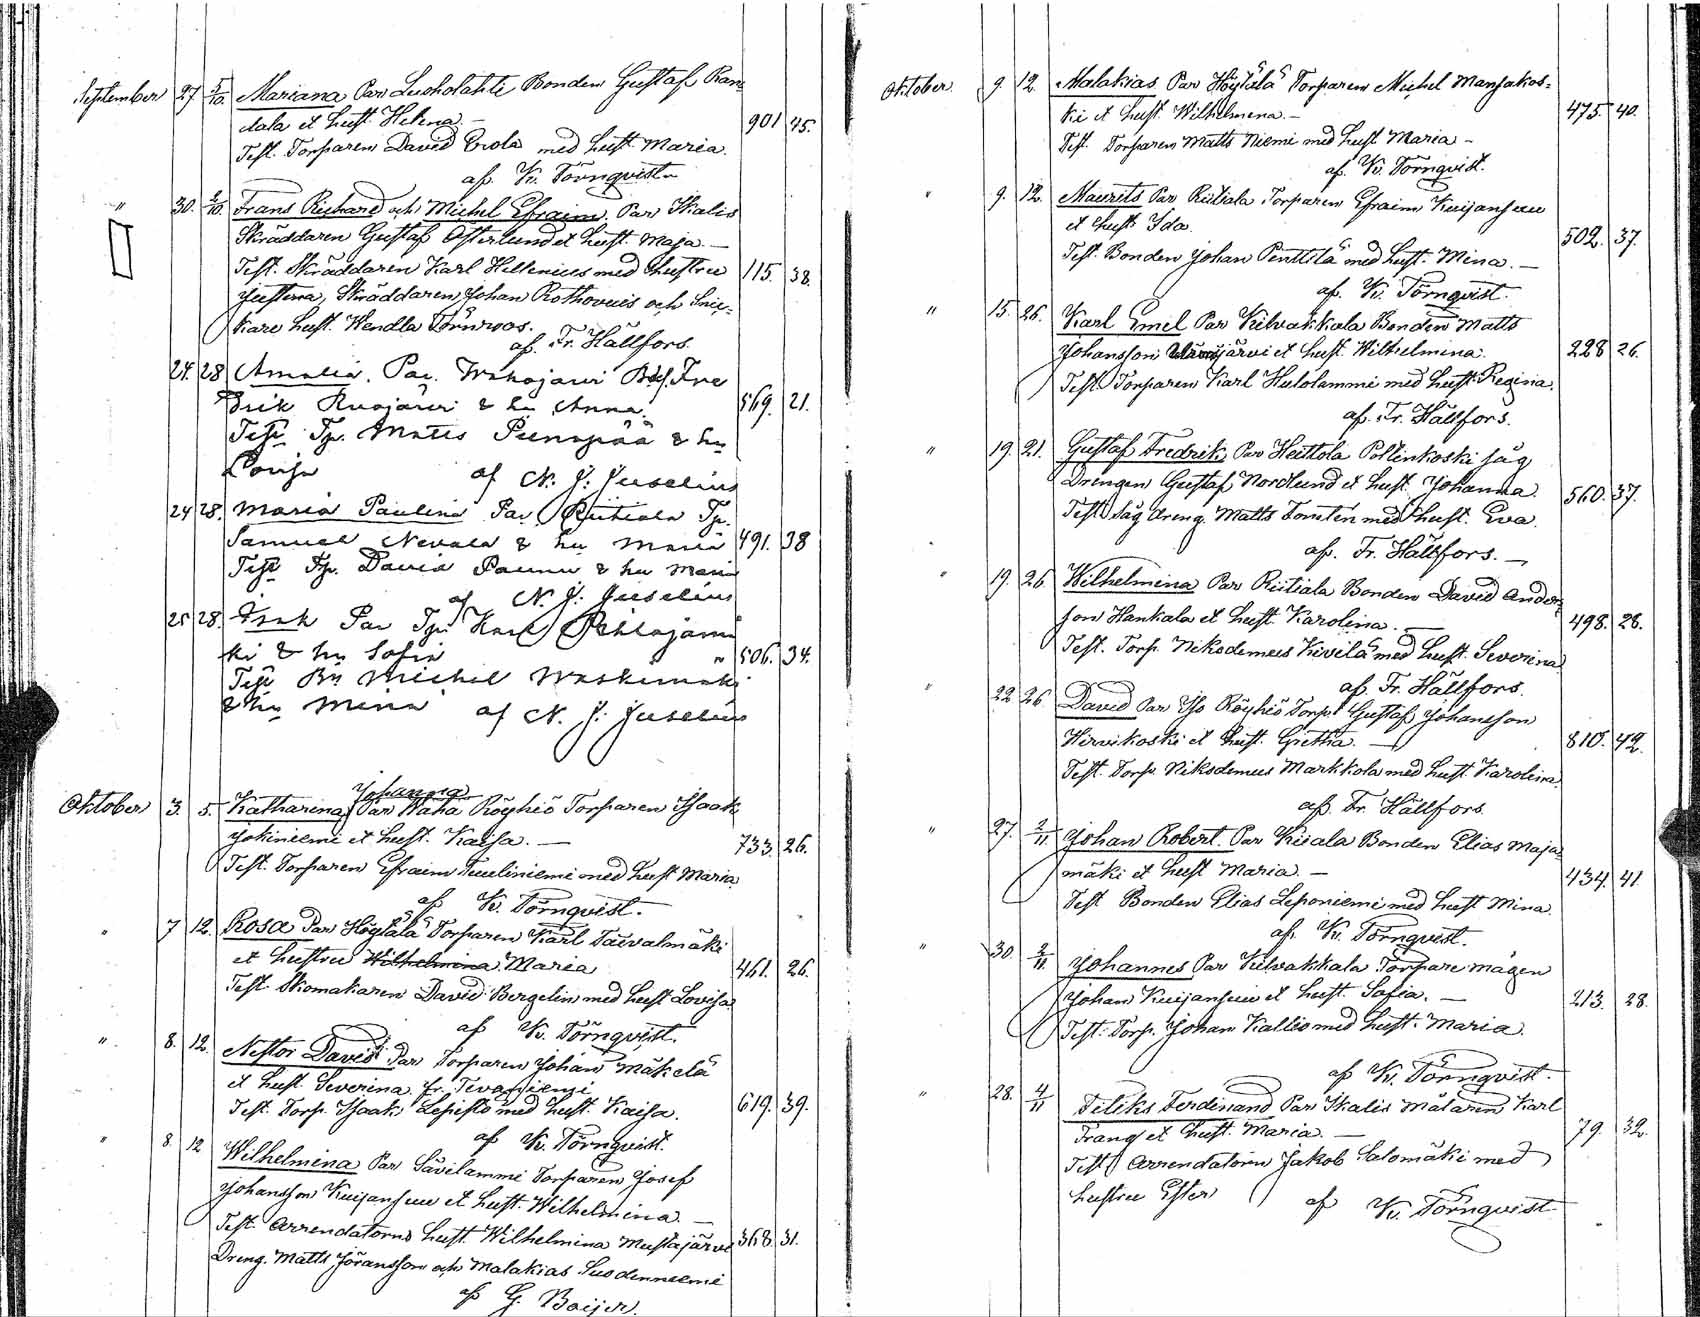 September 27. 5/10. Mariana Par Luoholahti Bonden Gustaf Ran-
tala et hust. Helena. — 901 45.
Test. Torparen David Erola med hust. Maria.
af Kv. Törnqvist.
" 30. 2/10. Frans Richard och Michel Efraim. Par Ikalis
Skräddaren Gustaf Österlund et hust. Maja. —
Test. Skräddaren Karl Hellenius med hustru 115. 38.
Justina, Skräddaren Johan Rothovuis och Snic-
kare hust. Wendla Törnroos.
af. Fr. Hällfors.
24. 28 Amalia. Par. Wahojärvi Fre
drik Ruojärvi & hu Anna. 569. 21.
Test Tp. Matts Pienepää & hu
Lovisa af N. J. Juselius
24 28. Maria Paulina Par Riitiala Tp.
Samuel Nevala & hu Maria 491. 38
Test Tp. David Paunu & hu Maria
af N. J. Juselius
25 28. Isak Par Tp. Karl Pihlajami
ki & hu Sofia 506. 34.
Test Michel Waskimäki
& hu Mina af N. J. Juselius
Johanna
Oktober 3. 5. Katharina Par Waha Röyhiö Torparen Isaak
Jokiniemi et hust. Kaisa. — 733. 26.
Test. Torparen Efraim Tuuliniemi med hust Maria
af Kv. Törnqvist.
" 7 12. Rosa Par Höytälä Torparen Karl Taivalmäki
et hustru Wilhelmina Maria 461. 26.
Test. Skomakaren David Bergelin med hust Lovisa.
af Kv. Törnqvist.
" 8. 12. Nestor David Par Torparen Johan Mäkelä
et hust. Severina fr. Tevaniemi
Test. Torp. Isaak Lepistö med hust. Kaisa. 619. 39.
af Kv. Törnqvist.
" 8. 12 Wilhelmina Par Sävilammi Torparen Josef
Johansson Kuijansuu et hust. Wilhelmina. —
Test. Arrendatorns hust. Wilhelmina Mustajärvi 368. 31.
Dreng. Matts Göransson och Malakias Suodenniemi
af G. Boijer.
Oktober. 9. 12. Malakias Par Höytälä Torparen Michel Mansakos-
ki et hust. Wilhelmina. — 475. 40.
Test. Torparen Matts Niemi med hust Maria —
af. Kv. Törnqvist.
" 9. 12. Maurits Par Riitiala Torparen Efraim Kuijansuu
et hust Ida. 502. 37.
Test. Bonden Johan Penttilä med hust. Mina. —
af. Kv. Törnqvist.
" 15. 26. Karl Emil Par Kilvakkala Bonden Matts
Johansson et hust. Wilhelmina. 228 26.
Test. Torparen Karl Hulolammi med hust. Regina.
af. Fr. Hällfors.
" 19. 21. Gustaf Fredrik Par Heittola Poltinkoski såg
Drengen Gustaf Nordlund et hust. Johanna. 560. 37.
Test. Såg dreng. Matts Tomtén med hust. Eva.
af. Fr. Hällfors. —
" 19. 26. Wilhelmina Par Riitiala Bonden David Anders-
son Hankala et hust. Karolina. — 498. 26.
Test. Torp. Nikodemus Kivilä med hust. Severina
af Fr. Hällfors.
" 22 26 David Par Iso Röyhiö Torp. Gustaf Johansson
Hirvikoski et hust. Gretha. — 810. 42.
Test. Torp. Nikodemus Markkola med hust. Karolina
af Fr. Hällfors.
" 27. 2/11. Johan Robert. Par Kiiala Bonden Elias Maja-
mäki et hust Maria. — 434. 41.
Test Bonden Elias Leponiemi med hust Mina.
af. Kv. Törnqvist.
" 30. 2/11. Johannes Par Kilvakkala Torpare mågen
Johan Kuijansuu et hust. Sofia. — 213. 28.
Test. Torp. Johan Kallio med hust. Maria.
af Kv. Törnqvist.
" 28. 4/11 Feliks Ferdinand Par Ikalis Målaren Karl
Frang et hust. Maria. — 79. 32.
Test. Arrendatorn Jakob Salomäki med
hustru Ester af Kv. Törnqvist